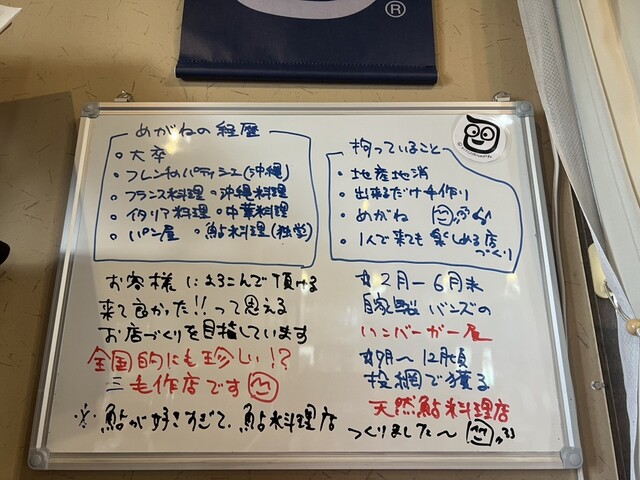 ®
めがねの経歴
・大卒
・フレンチのパティシエ(沖縄)
・フランス料理 ・沖縄料理
・イタリア料理 ・中華料理
・パン屋 ・鮎料理(独学)
拘っていること
・地産地消
・出来るだけ手作り
・めがね
・1人で来ても楽しめる店
づくり
お客様によろこんで頂ける
来て良かった!!って思える
お店づくりを目指しています
全国的にも珍しい!?
三毛作店です
※鮎が好きすぎて、鮎料理店
つくりました〜
2月〜6月末
自家製バンズの
ハンバーガー屋
〜12月頃
投網で獲る
天然鮎料理店